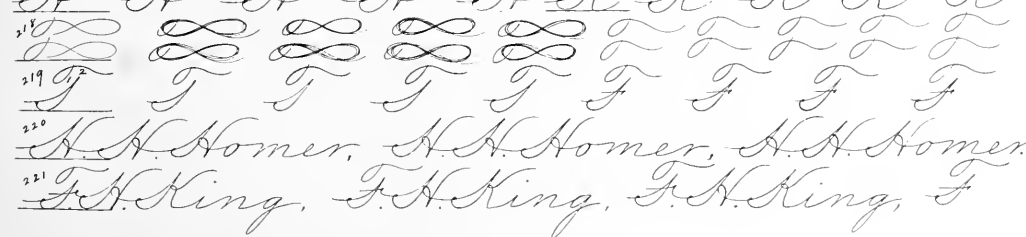 218
219 T T T T T F F F F
220 H. H. Homer, H. H. Homer, H. H. Homer.
221 F. H. King, F. H. King, F. H. King, F